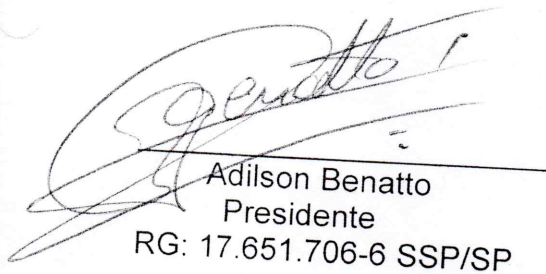 Benatto
Adilson Benatto
Presidente
RG: 17.651.706-6 SSP/SP